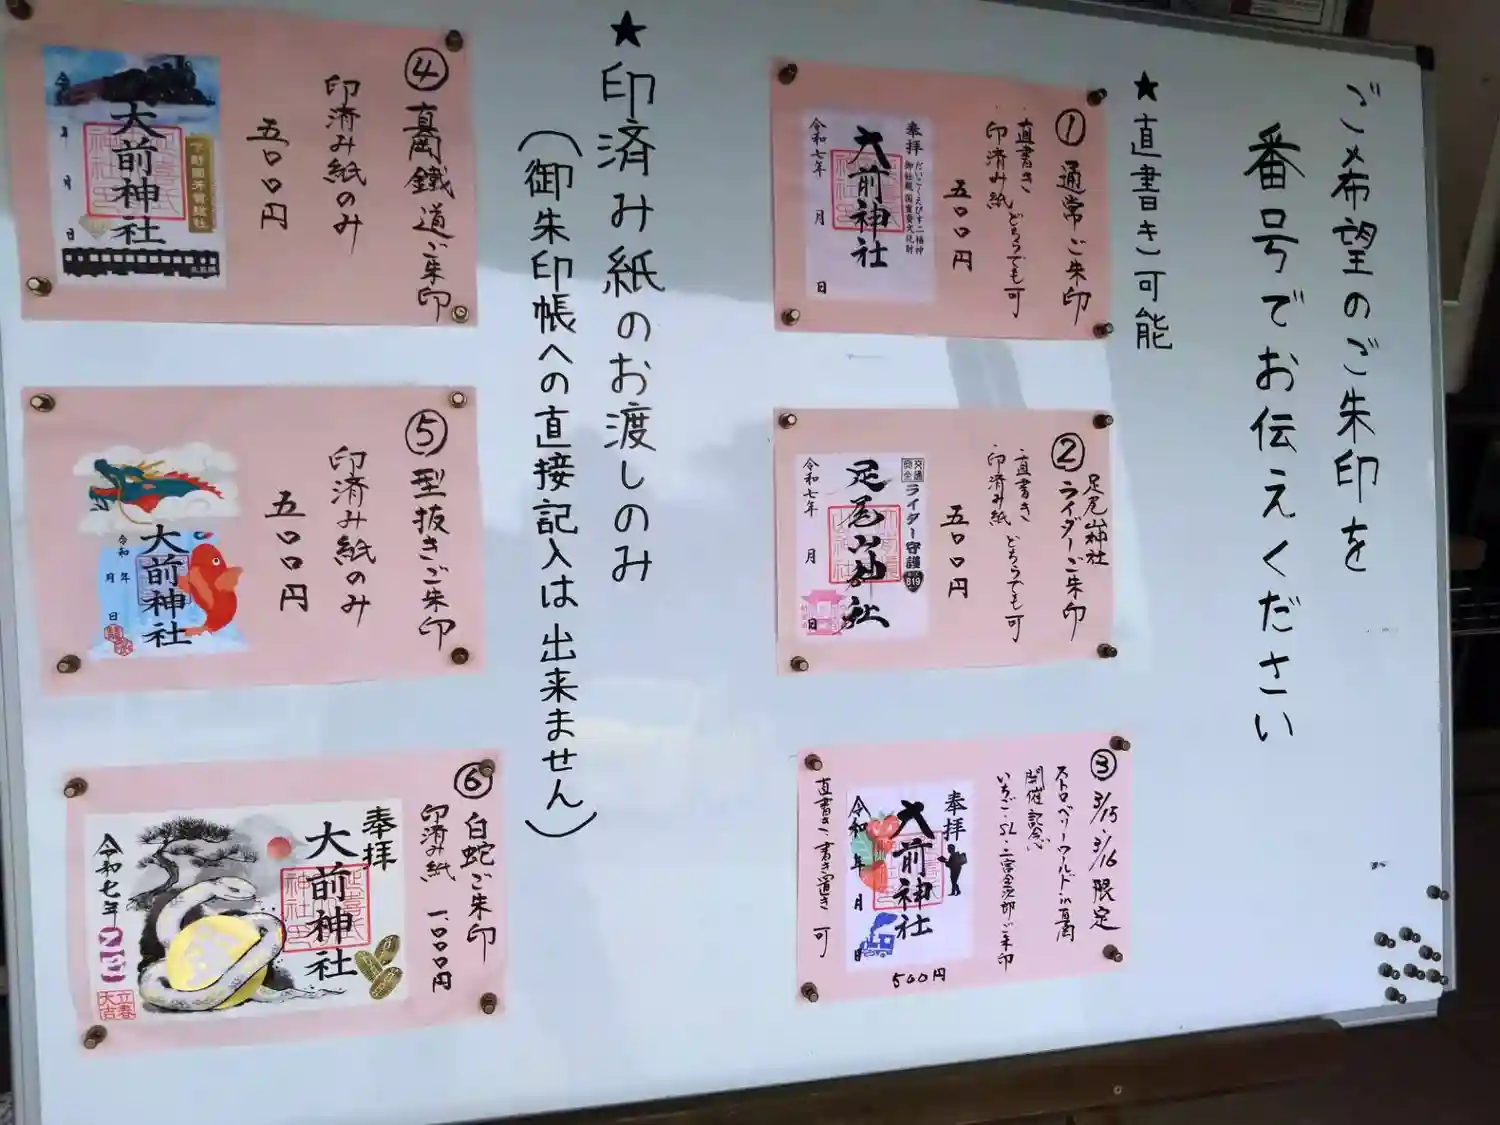 ご希望のご朱印を
番号でお伝えください
★直書き可能
① 通常ご朱印
・直書き
・印済み紙 どちらでも可
五〇〇円
奉拝
だいこくえびす二福神
御社殿 国重要文化財
大前神社
令和七年 月 日
足尾山神社
② ライダーご朱印
・直書き
・印済み紙 どちらでも可
五〇〇円
交通安全
ライダー守護
819
足尾山神社
令和七年 月 日
③ 3/15・3/16 限定
ストロベリーワールドin真岡
開催記念
いちご・SL・二宮金次郎ご朱印
奉拝
大前神社
令和 年 月 日
500円
直書き・書き置き 可
★印済み紙のお渡しのみ
(御朱印帳への直接記入は出来ません)
④ 真岡鐵道ご朱印
印済み紙のみ
五〇〇円
大前神社
令 年 月 日
⑤ 型抜きご朱印
印済み紙のみ
五〇〇円
大前神社
令和 年 月 日
⑥ 白蛇ご朱印
印済み紙 一、〇〇〇円
奉拝
大前神社
令和七年
立春大吉